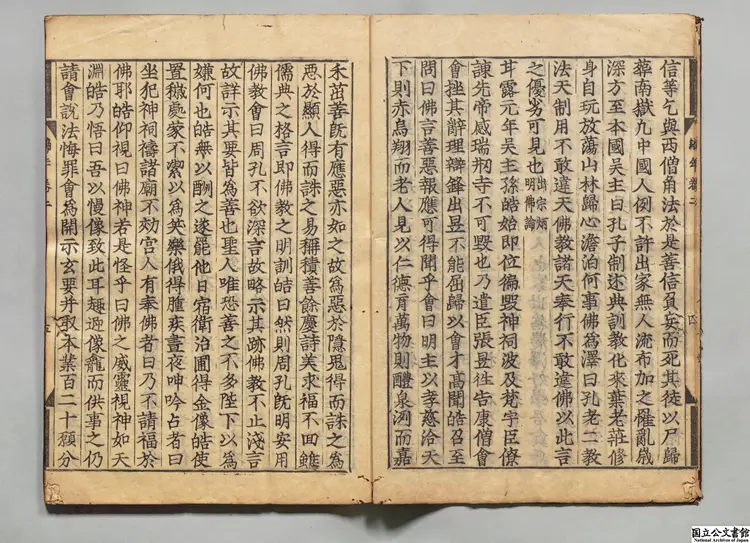 信等乞與西僧角法於是善信負妄而死其徒以尸歸
葬南嶽九中國人例不許出家無人流布加之罹亂歲
深方至本國吳主曰孔子制述典訓教化來葉老莊修
身自玩放蕩山林歸心澹泊何事佛為澤曰孔老二教
法天制用不敢違天佛教諸天奉行不敢違佛以此言
之優劣可見也出宗炳
明佛論
甘露元年吳主孫皓始即位徧毀神祠波及梵宇臣僚
諫先帝感瑞剏寺不可毀也乃遣臣張昱徃告康僧會
會挫其辭理辯鋒出昱不能屈歸以會才高聞皓召至
問曰佛言善惡報應可得聞乎會曰明主以孝慈治天
下則赤烏翔而老人見以仁德育萬物則醴泉冽而嘉
禾茁善既有應惡亦如之故為惡於隱鬼得而誅之為
惡於顯人得而誅之易稱積善餘慶詩美求福不回雖
儒典之格言即佛教之明訓皓曰然則周孔既明安用
佛教會曰周孔不欲深言故略示其跡佛教不止淺言
故詳示其要皆為善也聖人唯恐善之不多陛下以為
嫌何也皓無以酬之遂罷他日宿衛治圃得金像皓使
置穢處家不絜以為笑樂俄得腫疾晝夜呻吟占者曰
坐犯神祠禱諸廟不効宮人有奉佛者曰乃不請福於
佛耶皓仰視曰佛神若是怪乎曰佛之威靈視神如天
淵皓乃悟曰吾以慢像致此耳趣迎像龕而供事之仍
請會說法悔罪會為開示玄要并取本業百二十願分
国立公文書館
National Archives of Japan